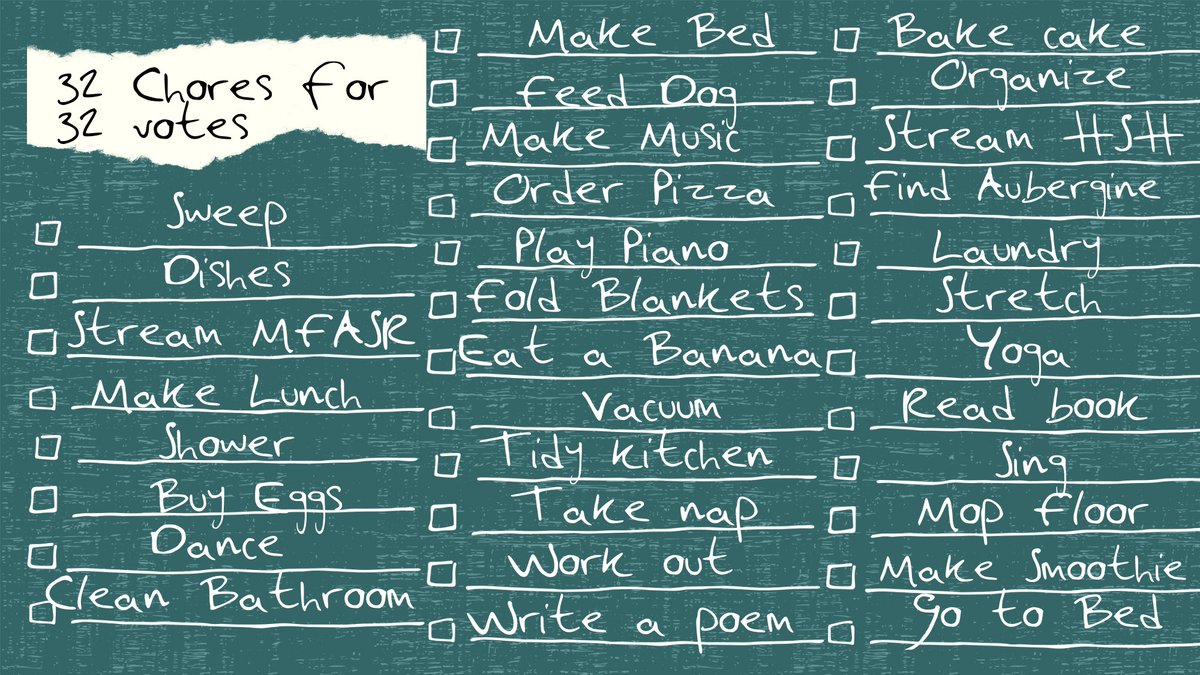 32 Chores for
32 votes
Sweep
Dishes
Stream MFASR
Make Lunch
Shower
Buy Eggs
Dance
Clean Bathroom
Make Bed
Feed Dog
Make Music
Order Pizza
Play Piano
Fold Blankets
Eat a Banana
Vacuum
Tidy Kitchen
Take nap
Work out
Write a poem
Bake cake
Organize
Stream HSH
Find Aubergine
Laundry
Stretch
Yoga
Read book
Sing
Mop Floor
Make Smoothie
Go to Bed